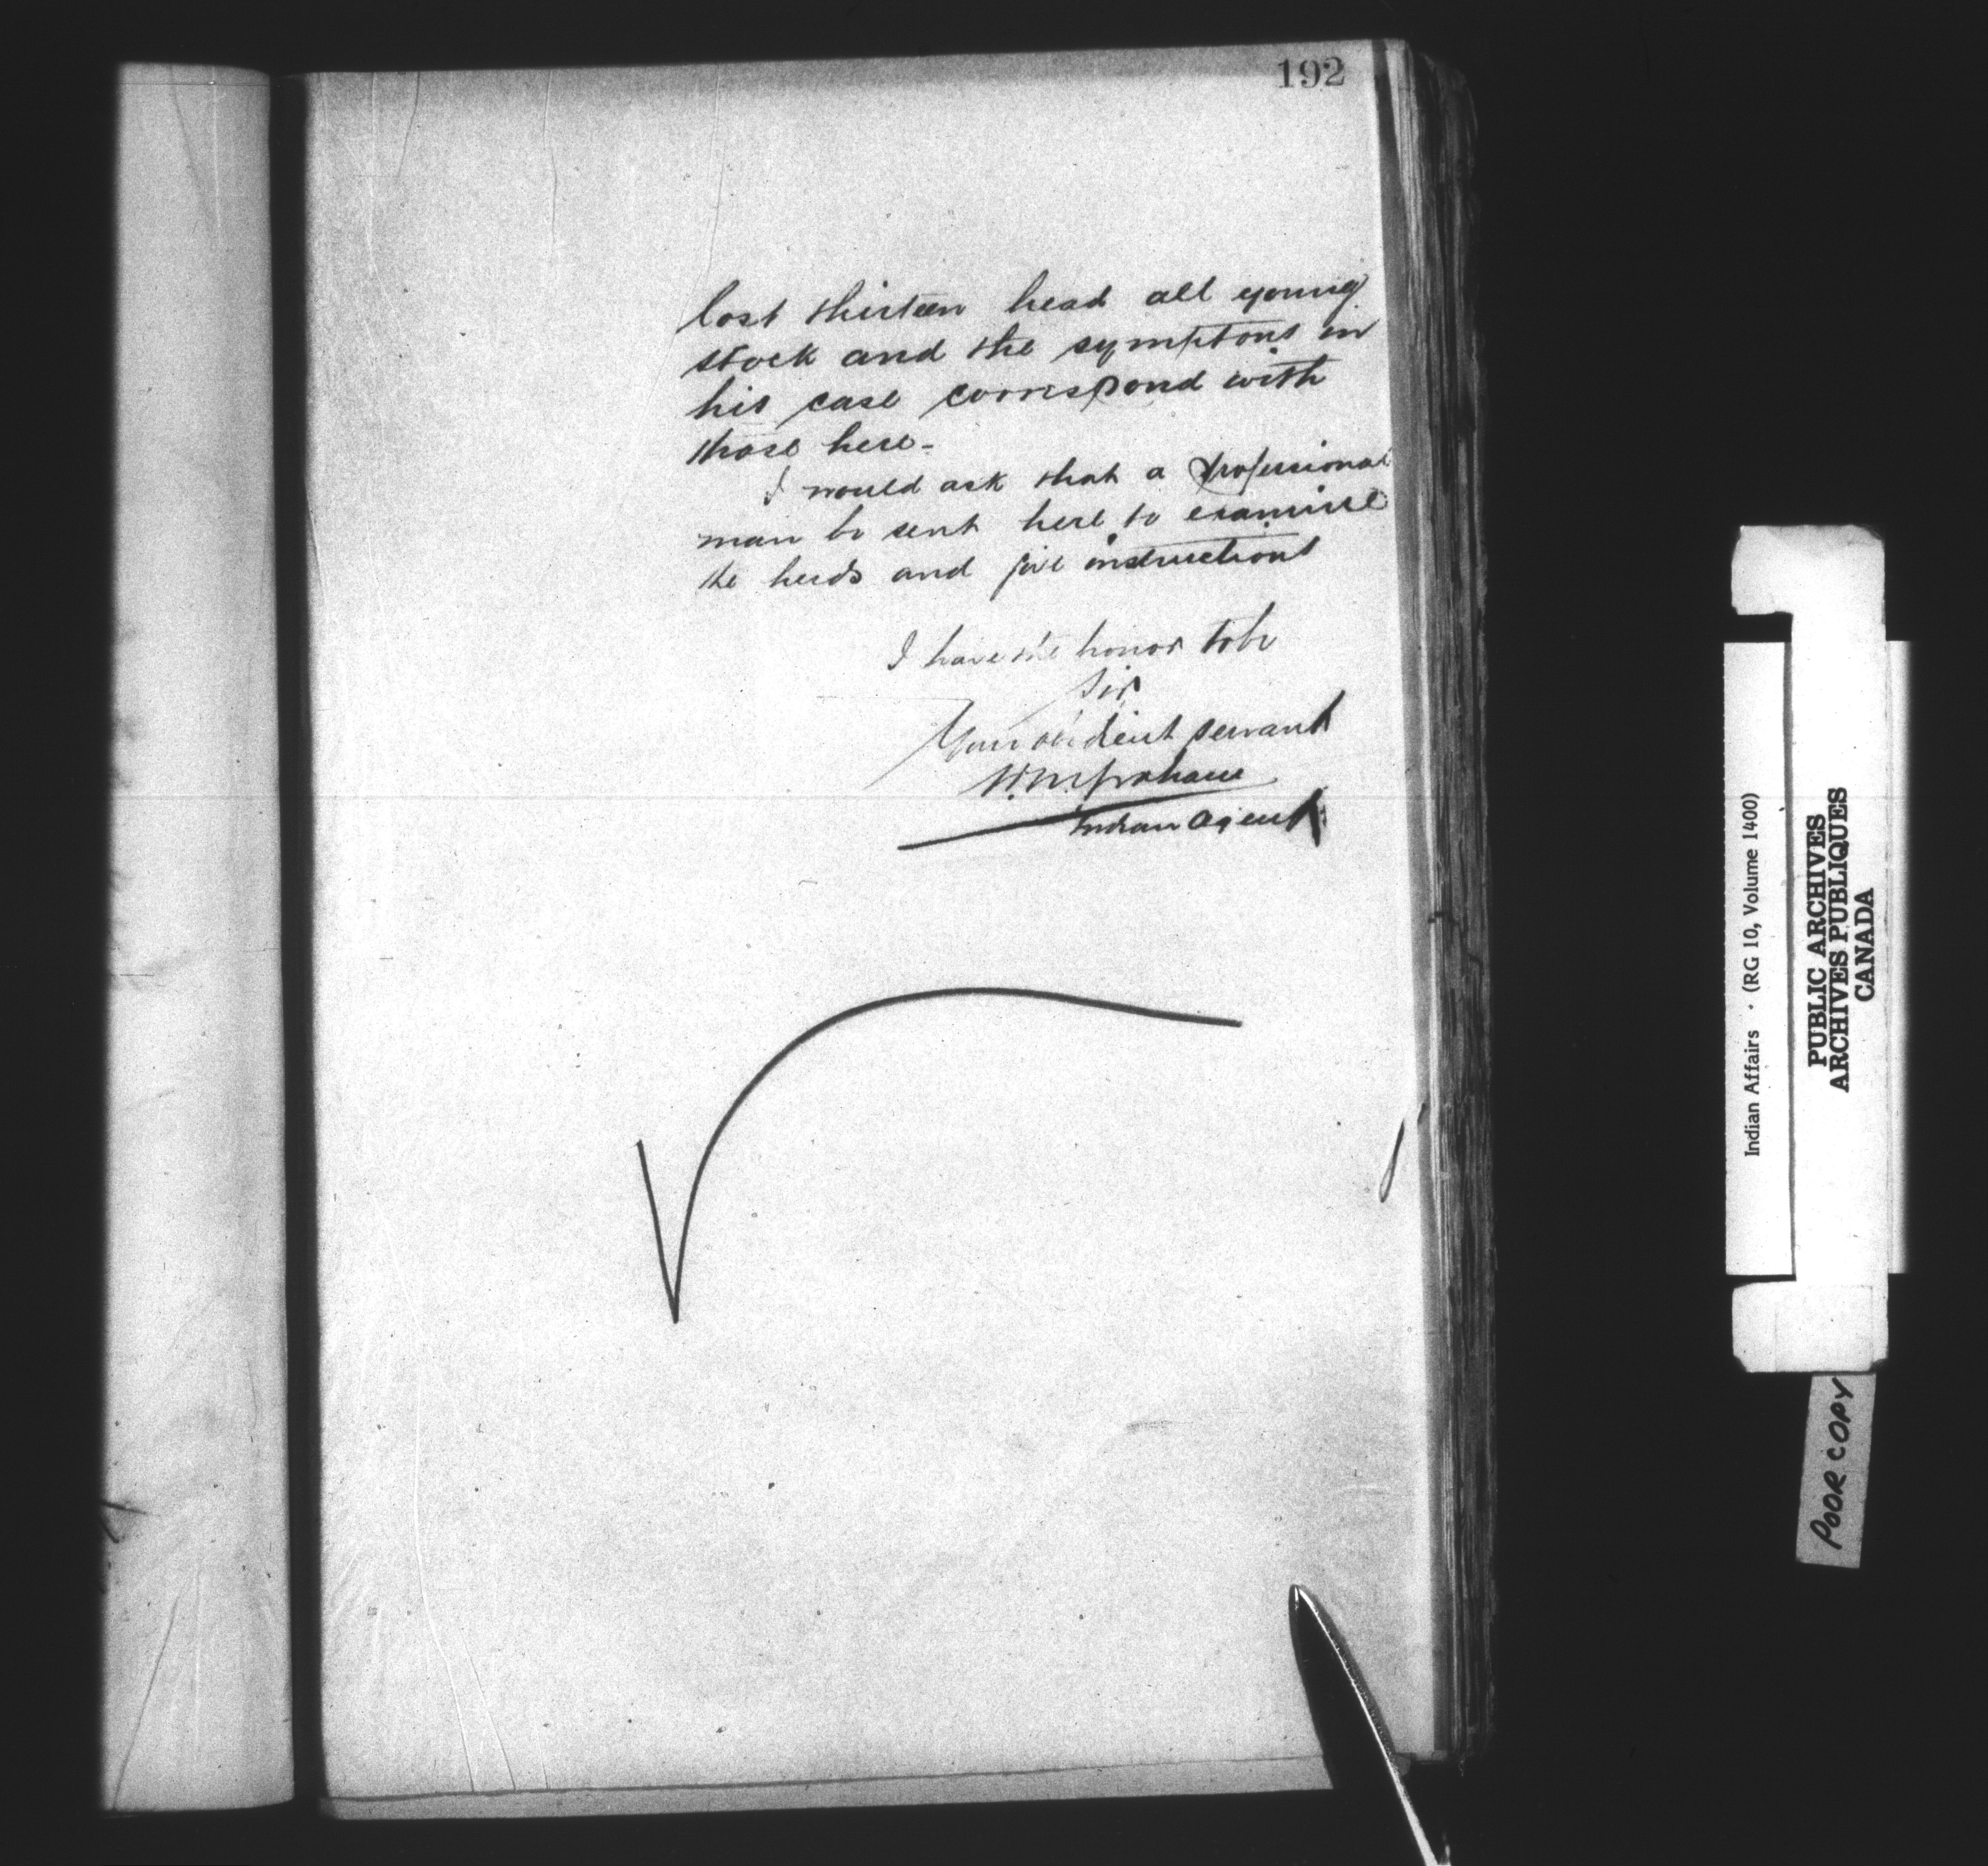 192
lost thirteen head all young
stock and the symptons in
his case correspond with
those here-
I would ask that a professional
man be sent here to examine
the herds and give instructions
I have the honor to be
Sir
Your obedient servant
W.M. Graham
Indian Agent
Indian Affairs · (RG 10, Volume 1400)
PUBLIC ARCHIVES
ARCHIVES PUBLIQUES
CANADA
POOR COPY